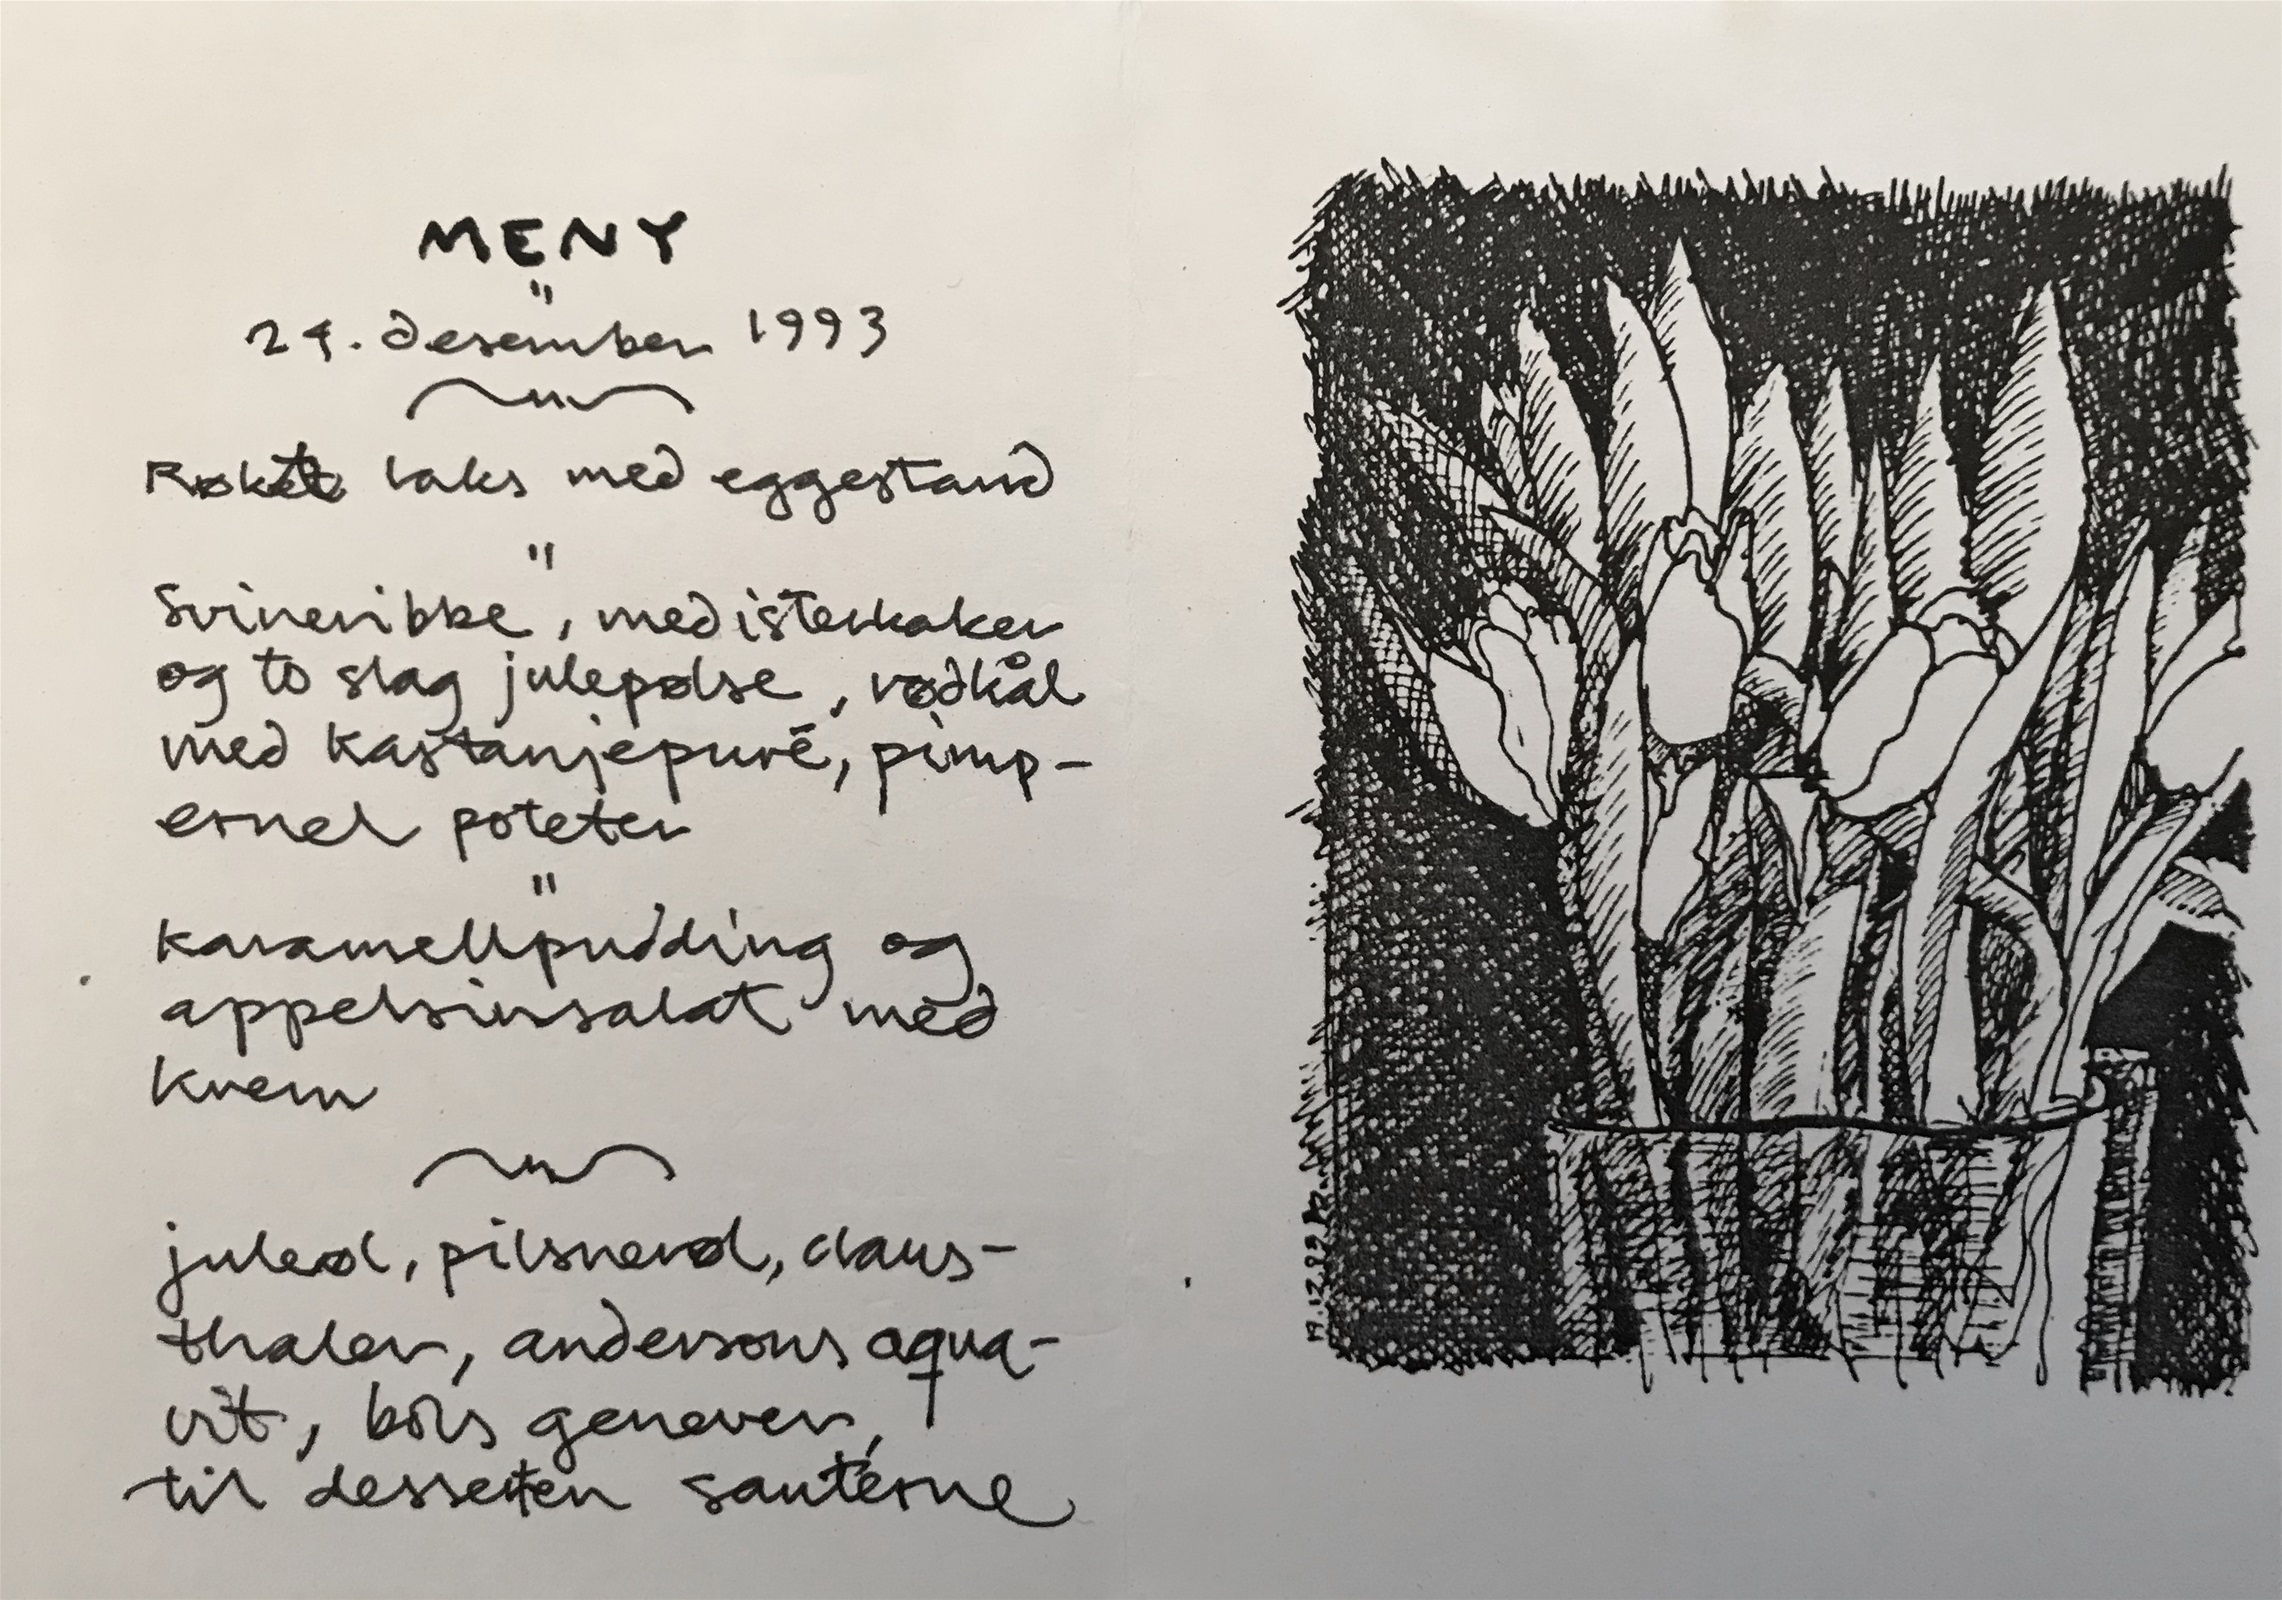 MENY
"
24. desember 1993
Røkt laks med eggestand
"
Svineribbe, medisterkaker
og to slag julepølse, rødkål
med kastanjepuré, pimp-
ernel poteter
"
karamellpudding og
appelsinsalat med
krem
juleøl, pilsnerøl, claus-
thaler, andersons aqua-
vit, bols genever,
til desserten sautérne